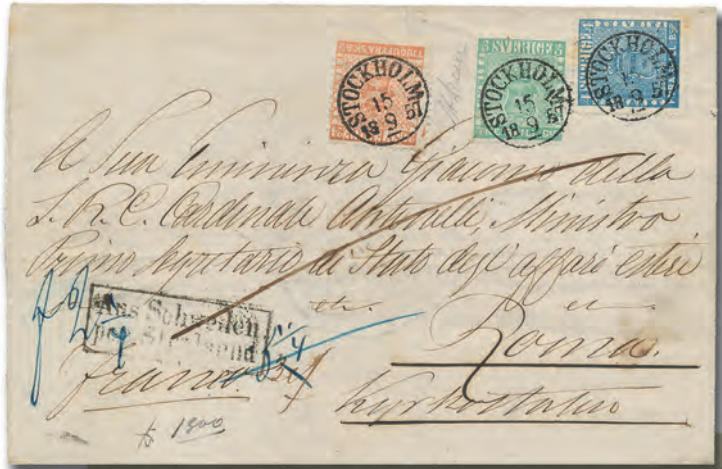 TJUGUFYRA SK.B
SVERIGE
STOCKHOLM
15
9
18
STOCKHOLM
15
9
18
STOCKHOLM
15
9
18
A Sua Eminenza Giacomo della
S. R. C. Cardinale Antonelli, Ministro
Primo Segretario di Stato degl' affari esteri
etc.
Roma.
Aus Schweden
per Stralsund
franco
Kyrkostaten
1800